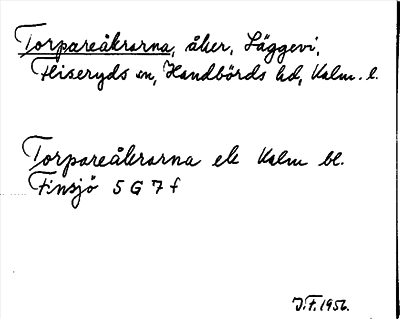 Torpareåkrarna, åker, Läggevi,
Fliseryds sn, Handbörds hd, Kalm. l.
Torpareåkrarna ek Kalm bl.
Finsjö 5 G 7 f
J.F. 1956.